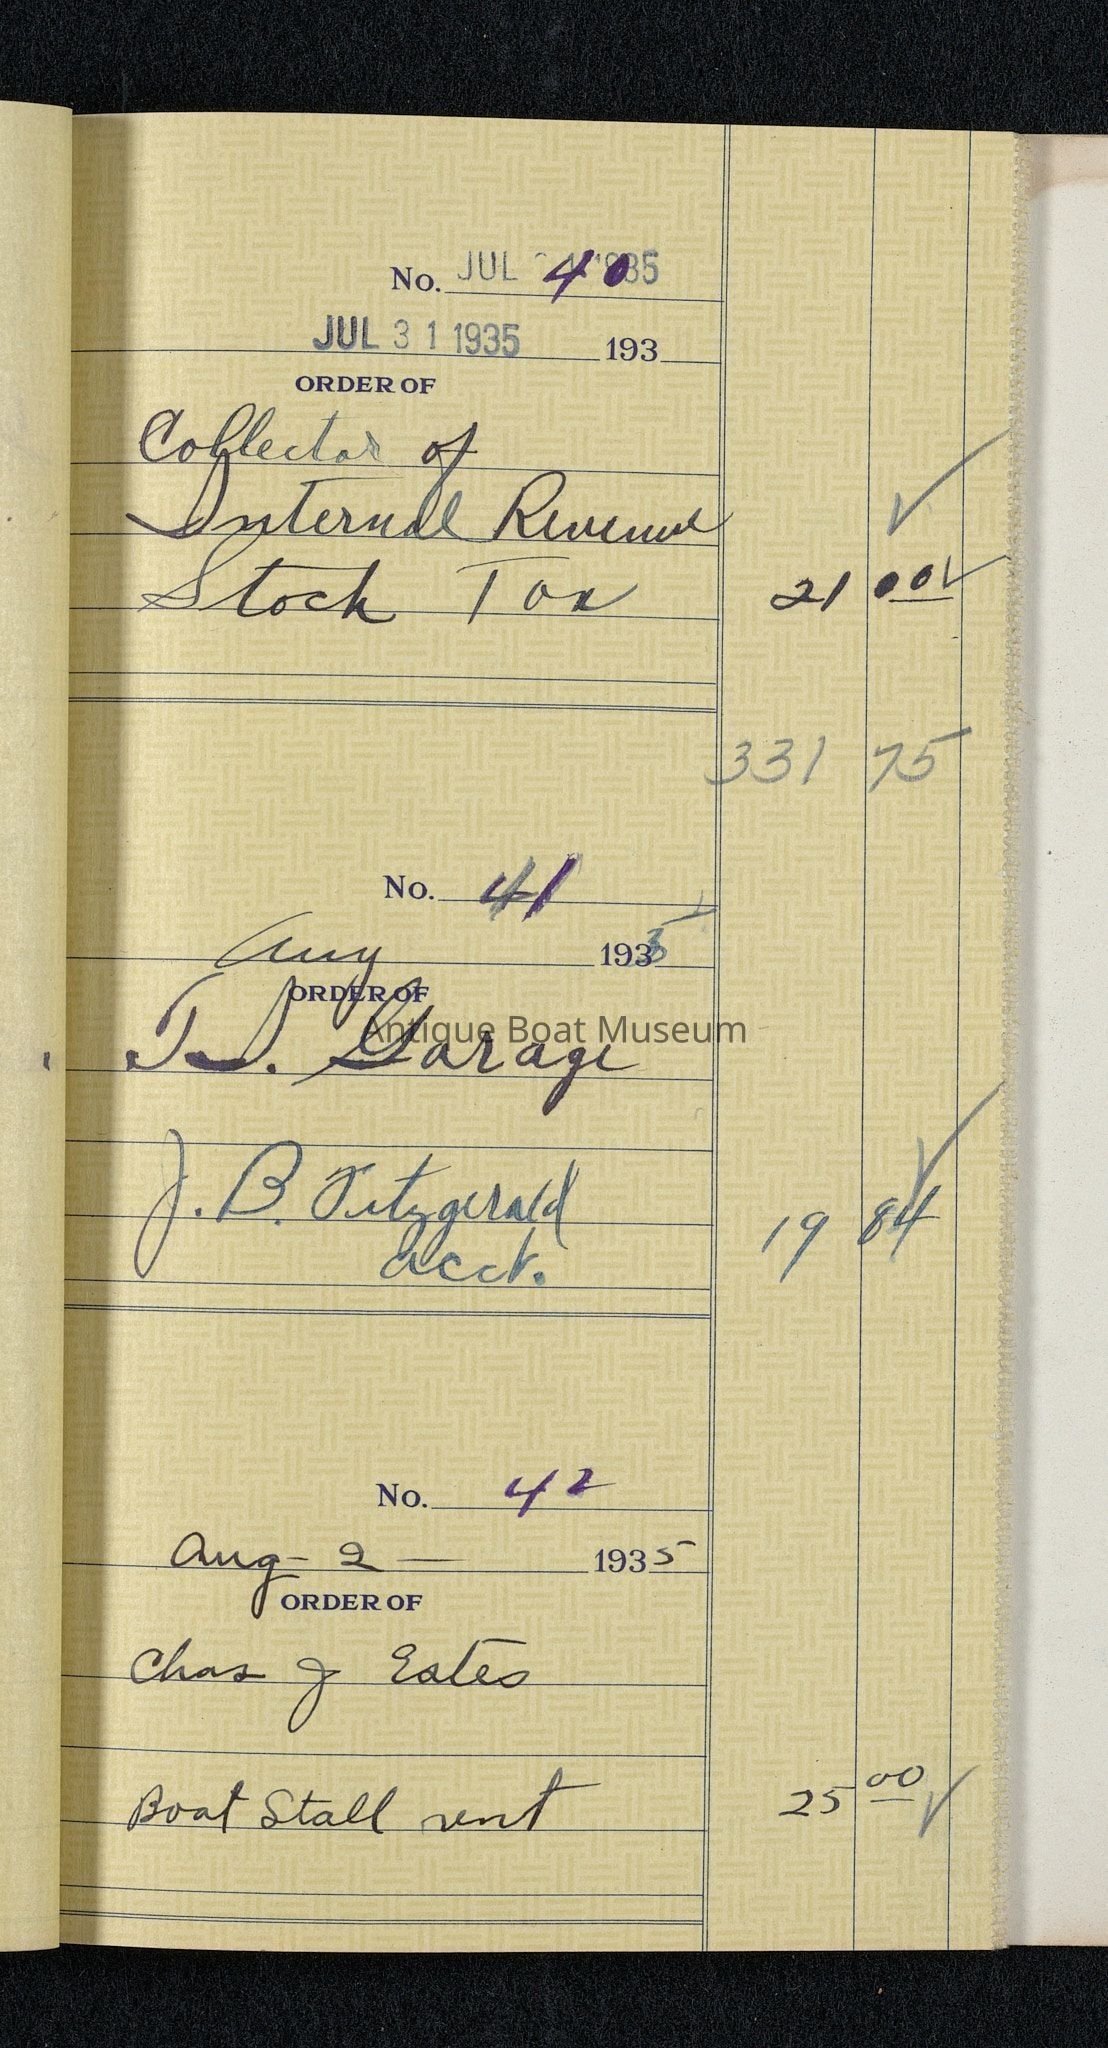 No. JUL 40 1935
JUL 31 1935 193
ORDER OF
Collector of
Internal Revenue
Stock Tax 21 00
331 75
No. 41
Aug 1935
ORDER OF
T. I. Garage
Antique Boat Museum
J. B. Fitzgerald
acct. 19 84
No. 42
Aug - 2 — 1935
ORDER OF
Chas J Estes
Boat Stall rent 25 00